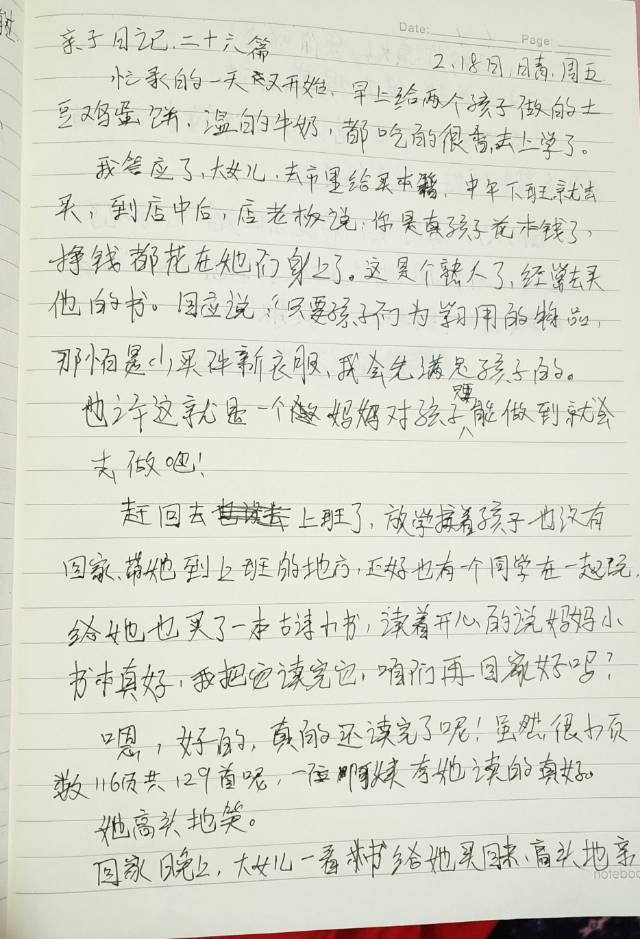 Date: / / Page:
亲子日记.二十六篇
2.18日,日青,周五
忙录的一天又开始,早上给两个孩子做的土
豆鸡蛋饼.温的牛奶,都吃的很香去上学了。
我答应了,大女儿,去市里给买本书,中午下班就去
买,到店中后,店老板说:你是真孩子花本钱了,
挣钱都花在她们身上了。这是个熟人了,经常去买
他的书。回应说:只要孩子们为学习用的物品,
那怕是少买件新衣服,我会先满足孩子的。
也许这就是一个做妈妈对孩子要能做到就会
去做吧!
赶回去上班了,放学接着孩子也没有
回家.带她到上班的地方,还好也有一个同学在一起玩,
给她也买了一本古诗小书,读着开心的说妈妈小
书本真好,我把它读完它,咱们再回家好吗?
嗯,好的,真的还读完了呢!虽然很小页
数116页共129首呢,一位阿姨夸她读的真好。
她高兴地笑。
回家晚上,大女儿一看书给她买回来,高兴地亲
notebook